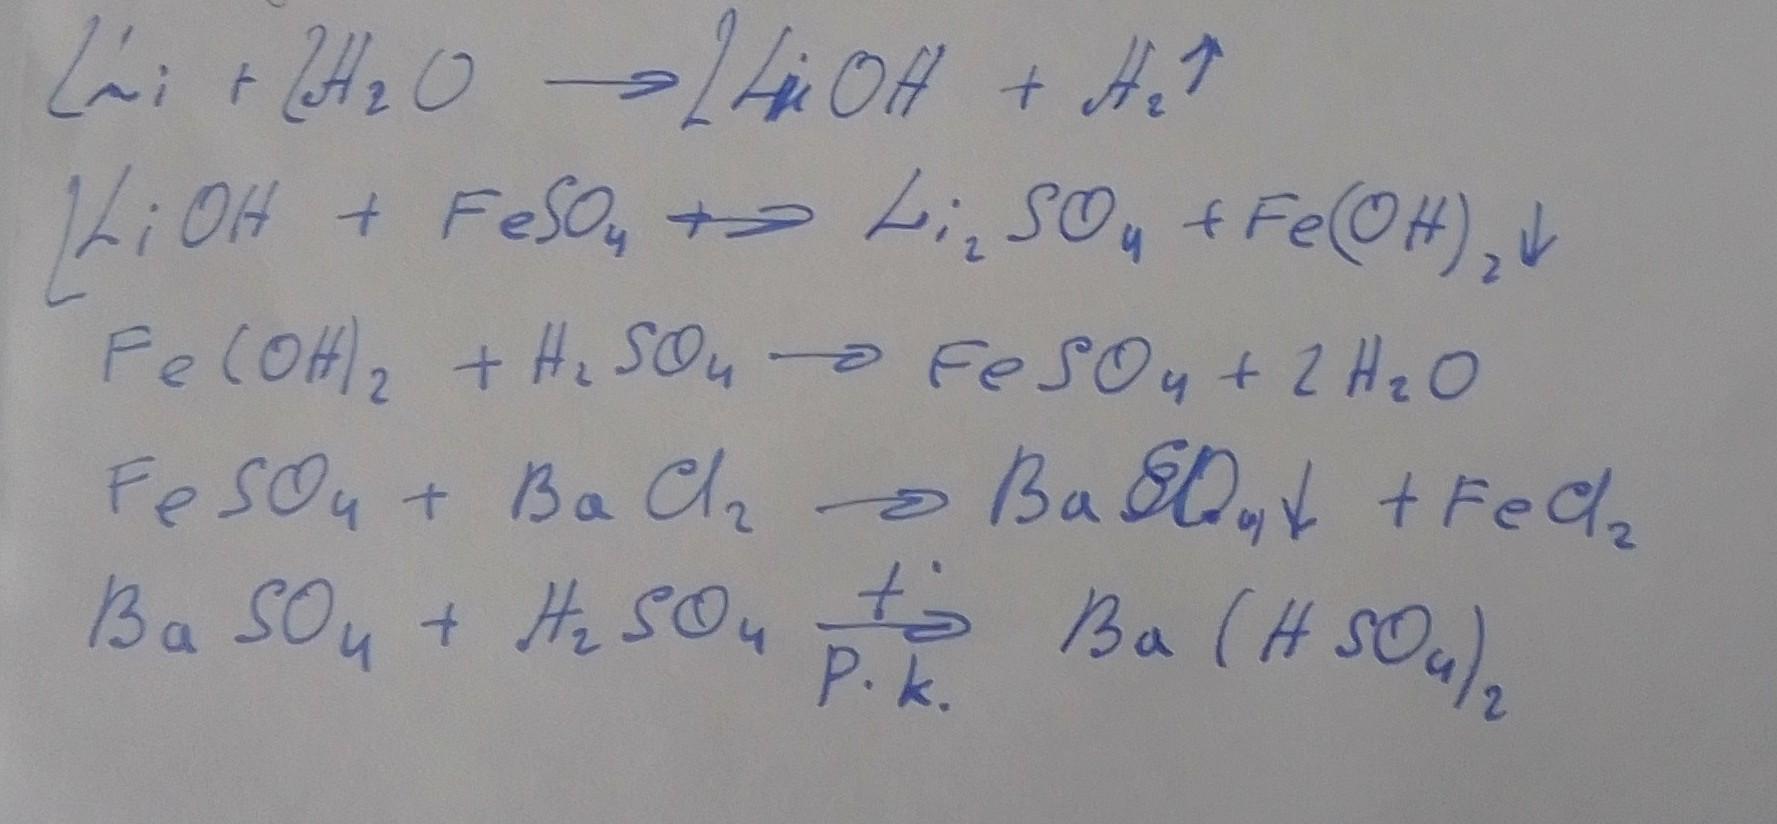 2Li + 2H₂O → 2LiOH + H₂↑
2LiOH + FeSO₄ → Li₂SO₄ + Fe(OH)₂↓
Fe(OH)₂ + H₂SO₄ → FeSO₄ + 2H₂O
FeSO₄ + BaCl₂ → BaSO₄↓ + FeCl₂
t°
BaSO₄ + H₂SO₄ → Ba(HSO₄)₂
р.к.